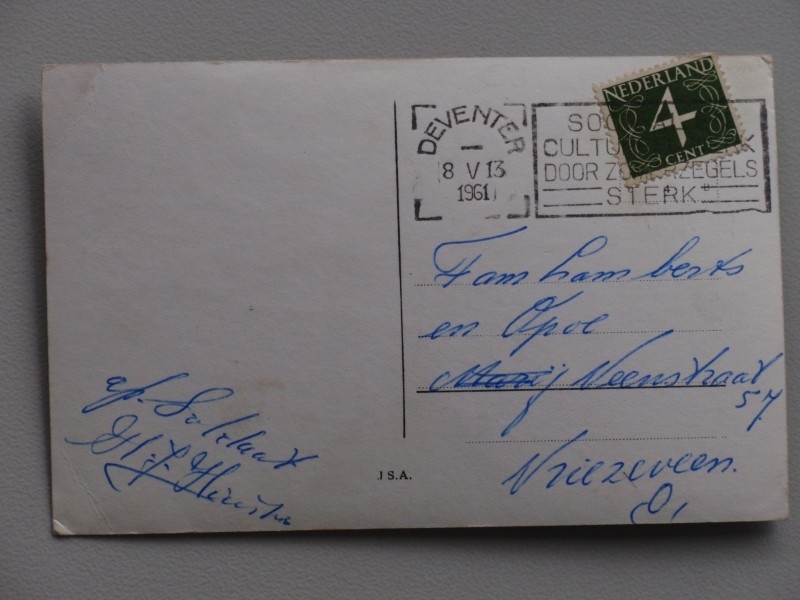 NEDERLAND
4
CENT
DEVENTER
8 V 13
1961
SOC
CULTU K
DOOR ZO ZEGELS
STERK
Fam Lamberts
en Opoe
Veenstraat
57
Vriezeveen.
O,
afz. Soldaat
J S.A.